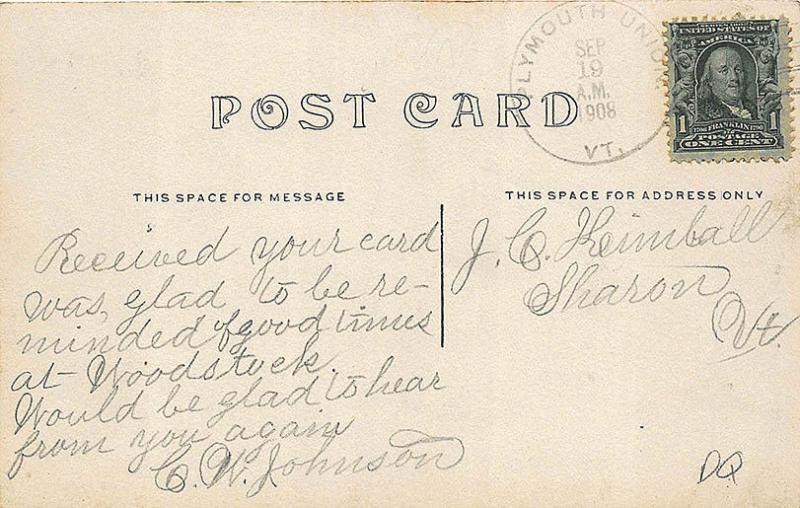 PLYMOUTH UNION
SEP
19
A.M.
1908
VT.
SERIES 1902
UNITED STATES OF
AMERICA
1 1706 FRANKLIN 1790 1
POSTAGE
ONE CENT
POST CARD
THIS SPACE FOR MESSAGE
THIS SPACE FOR ADDRESS ONLY
Received your card
was, glad to be re-
minded of good times
at Woodstock.
Would be glad to hear
from you again
C. W. Johnson
J. C. Kimball
Sharon
Vt.
DQ